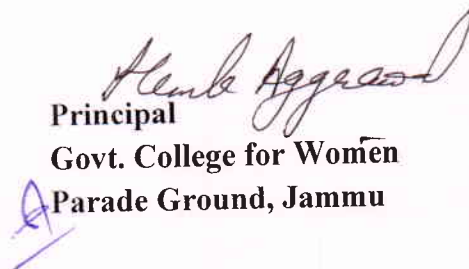 Aggrawal
Principal
Govt. College for Women
Parade Ground, Jammu